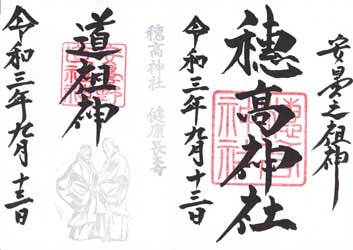 安曇之祖神
穂高神社
令和三年九月十三日
穂高神社 健康長寿
道祖神
令和三年九月十三日